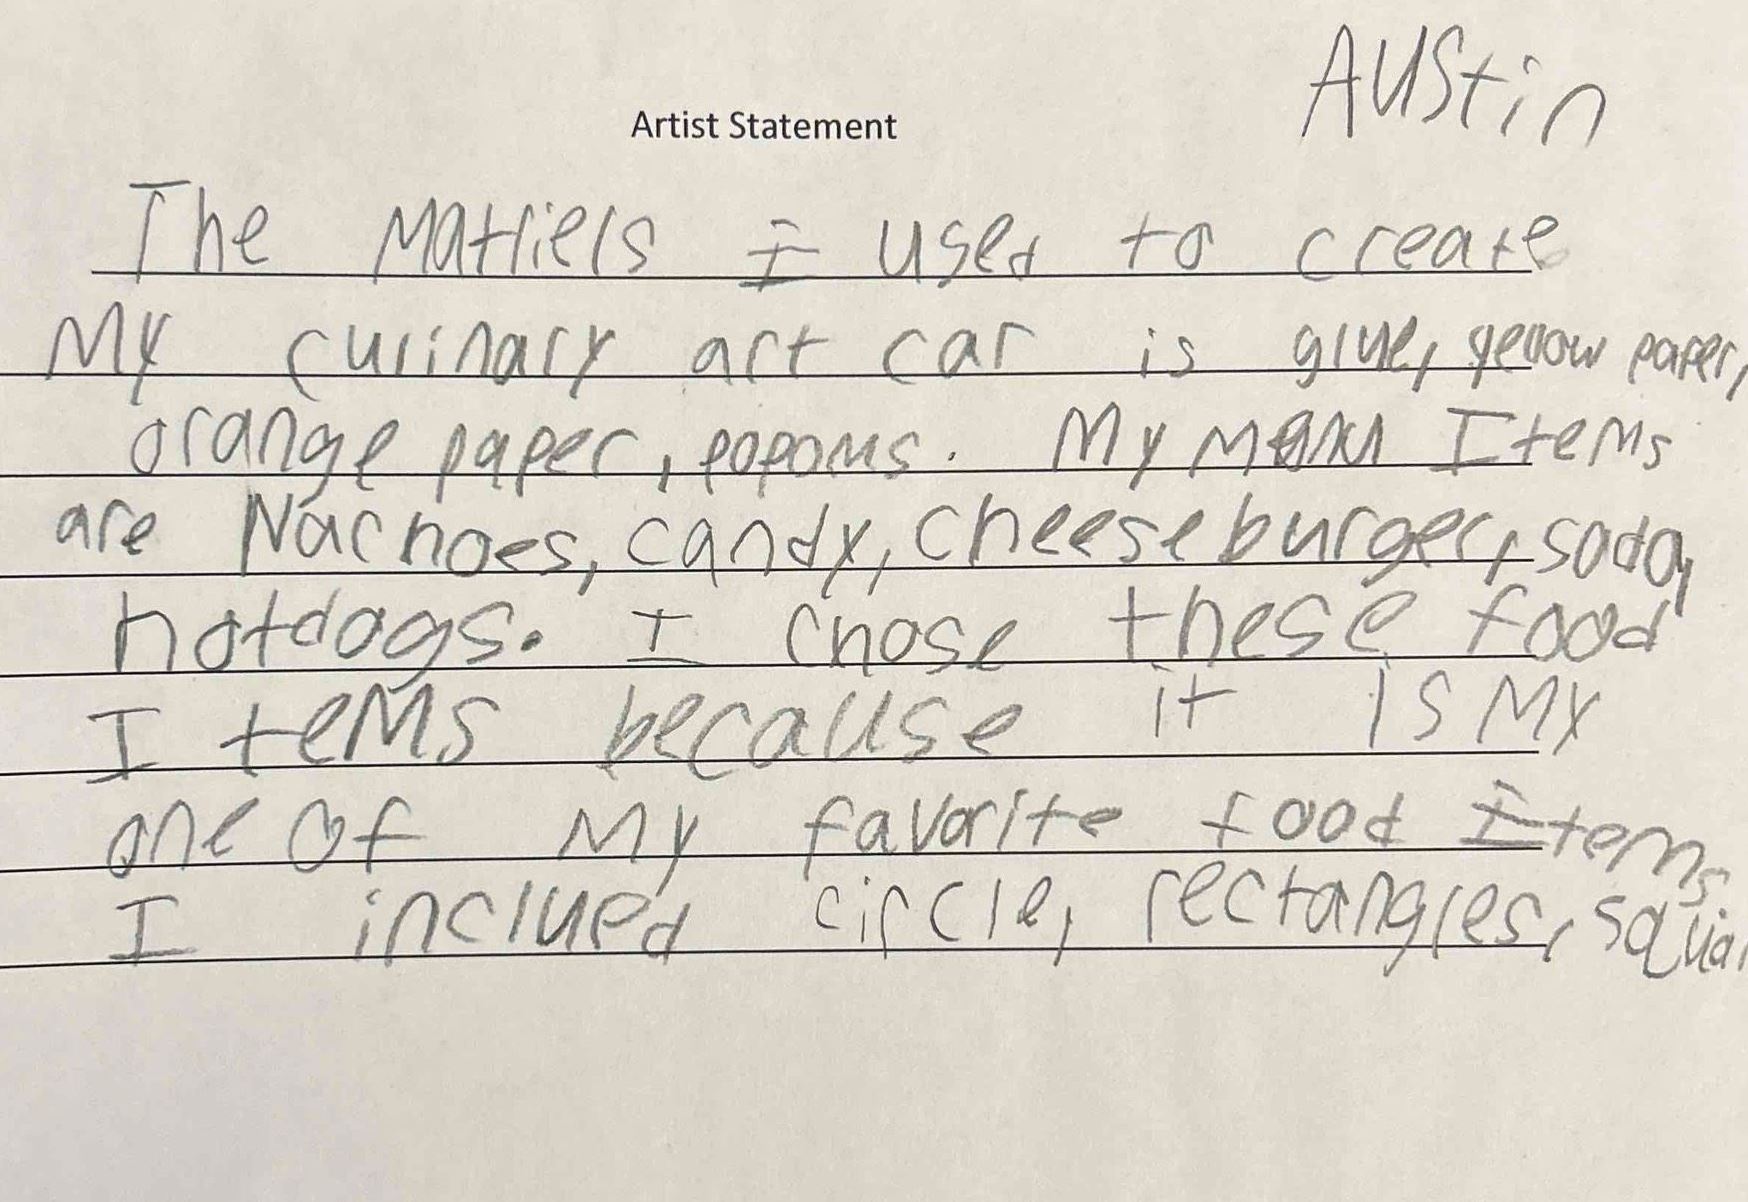 AUStin
Artist Statement
The Matriels I used to create
My curinary art car is glue, yellow paper,
orange paper, popoms. My menu Items
are Nachoes, candy, cheeseburger, soda,
hotdogs. I chose these food
Items because it is My
one of My favorite food Items.
I inclued circle, rectangles, squa